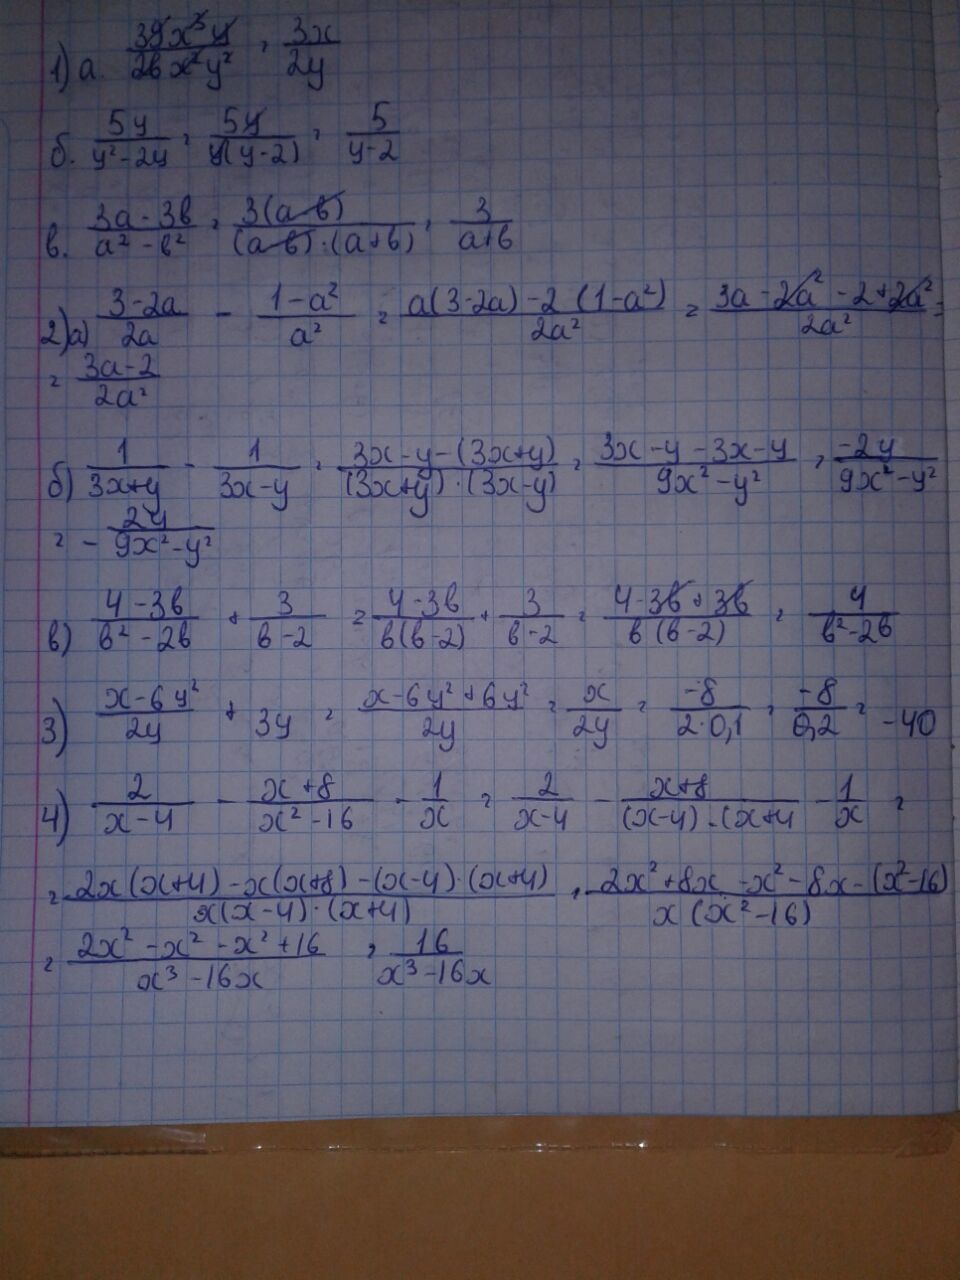 1) а. 39x³y / 26x²y² = 3x / 2y
б. 5y / y²-2y = 5y / y(y-2) = 5 / y-2
в. 3a-3b / a²-b² = 3(a-b) / (a-b)·(a+b) = 3 / a+b
2) а) 3-2a / 2a - 1-a² / a² = a(3-2a)-2(1-a²) / 2a² = 3a-2a²-2+2a² / 2a² =
= 3a-2 / 2a²
б) 1 / 3x+y - 1 / 3x-y = 3x-y-(3x+y) / (3x+y)·(3x-y) = 3x-y-3x-y / 9x²-y² = -2y / 9x²-y²
= - 2y / 9x²-y²
в) 4-3b / b²-2b + 3 / b-2 = 4-3b / b(b-2) + 3 / b-2 = 4-3b+3b / b(b-2) = 4 / b²-2b
3) x-6y² / 2y + 3y = x-6y²+6y² / 2y = x / 2y = -8 / 2·0,1 = -8 / 0,2 = -40
4) 2 / x-4 - x+8 / x²-16 - 1 / x = 2 / x-4 - x+8 / (x-4)·(x+4 - 1 / x =
= 2x(x+4)-x(x+8)-(x-4)·(x+4) / x(x-4)·(x+4) = 2x²+8x-x²-8x-(x²-16) / x(x²-16)
= 2x²-x²-x²+16 / x³-16x = 16 / x³-16x